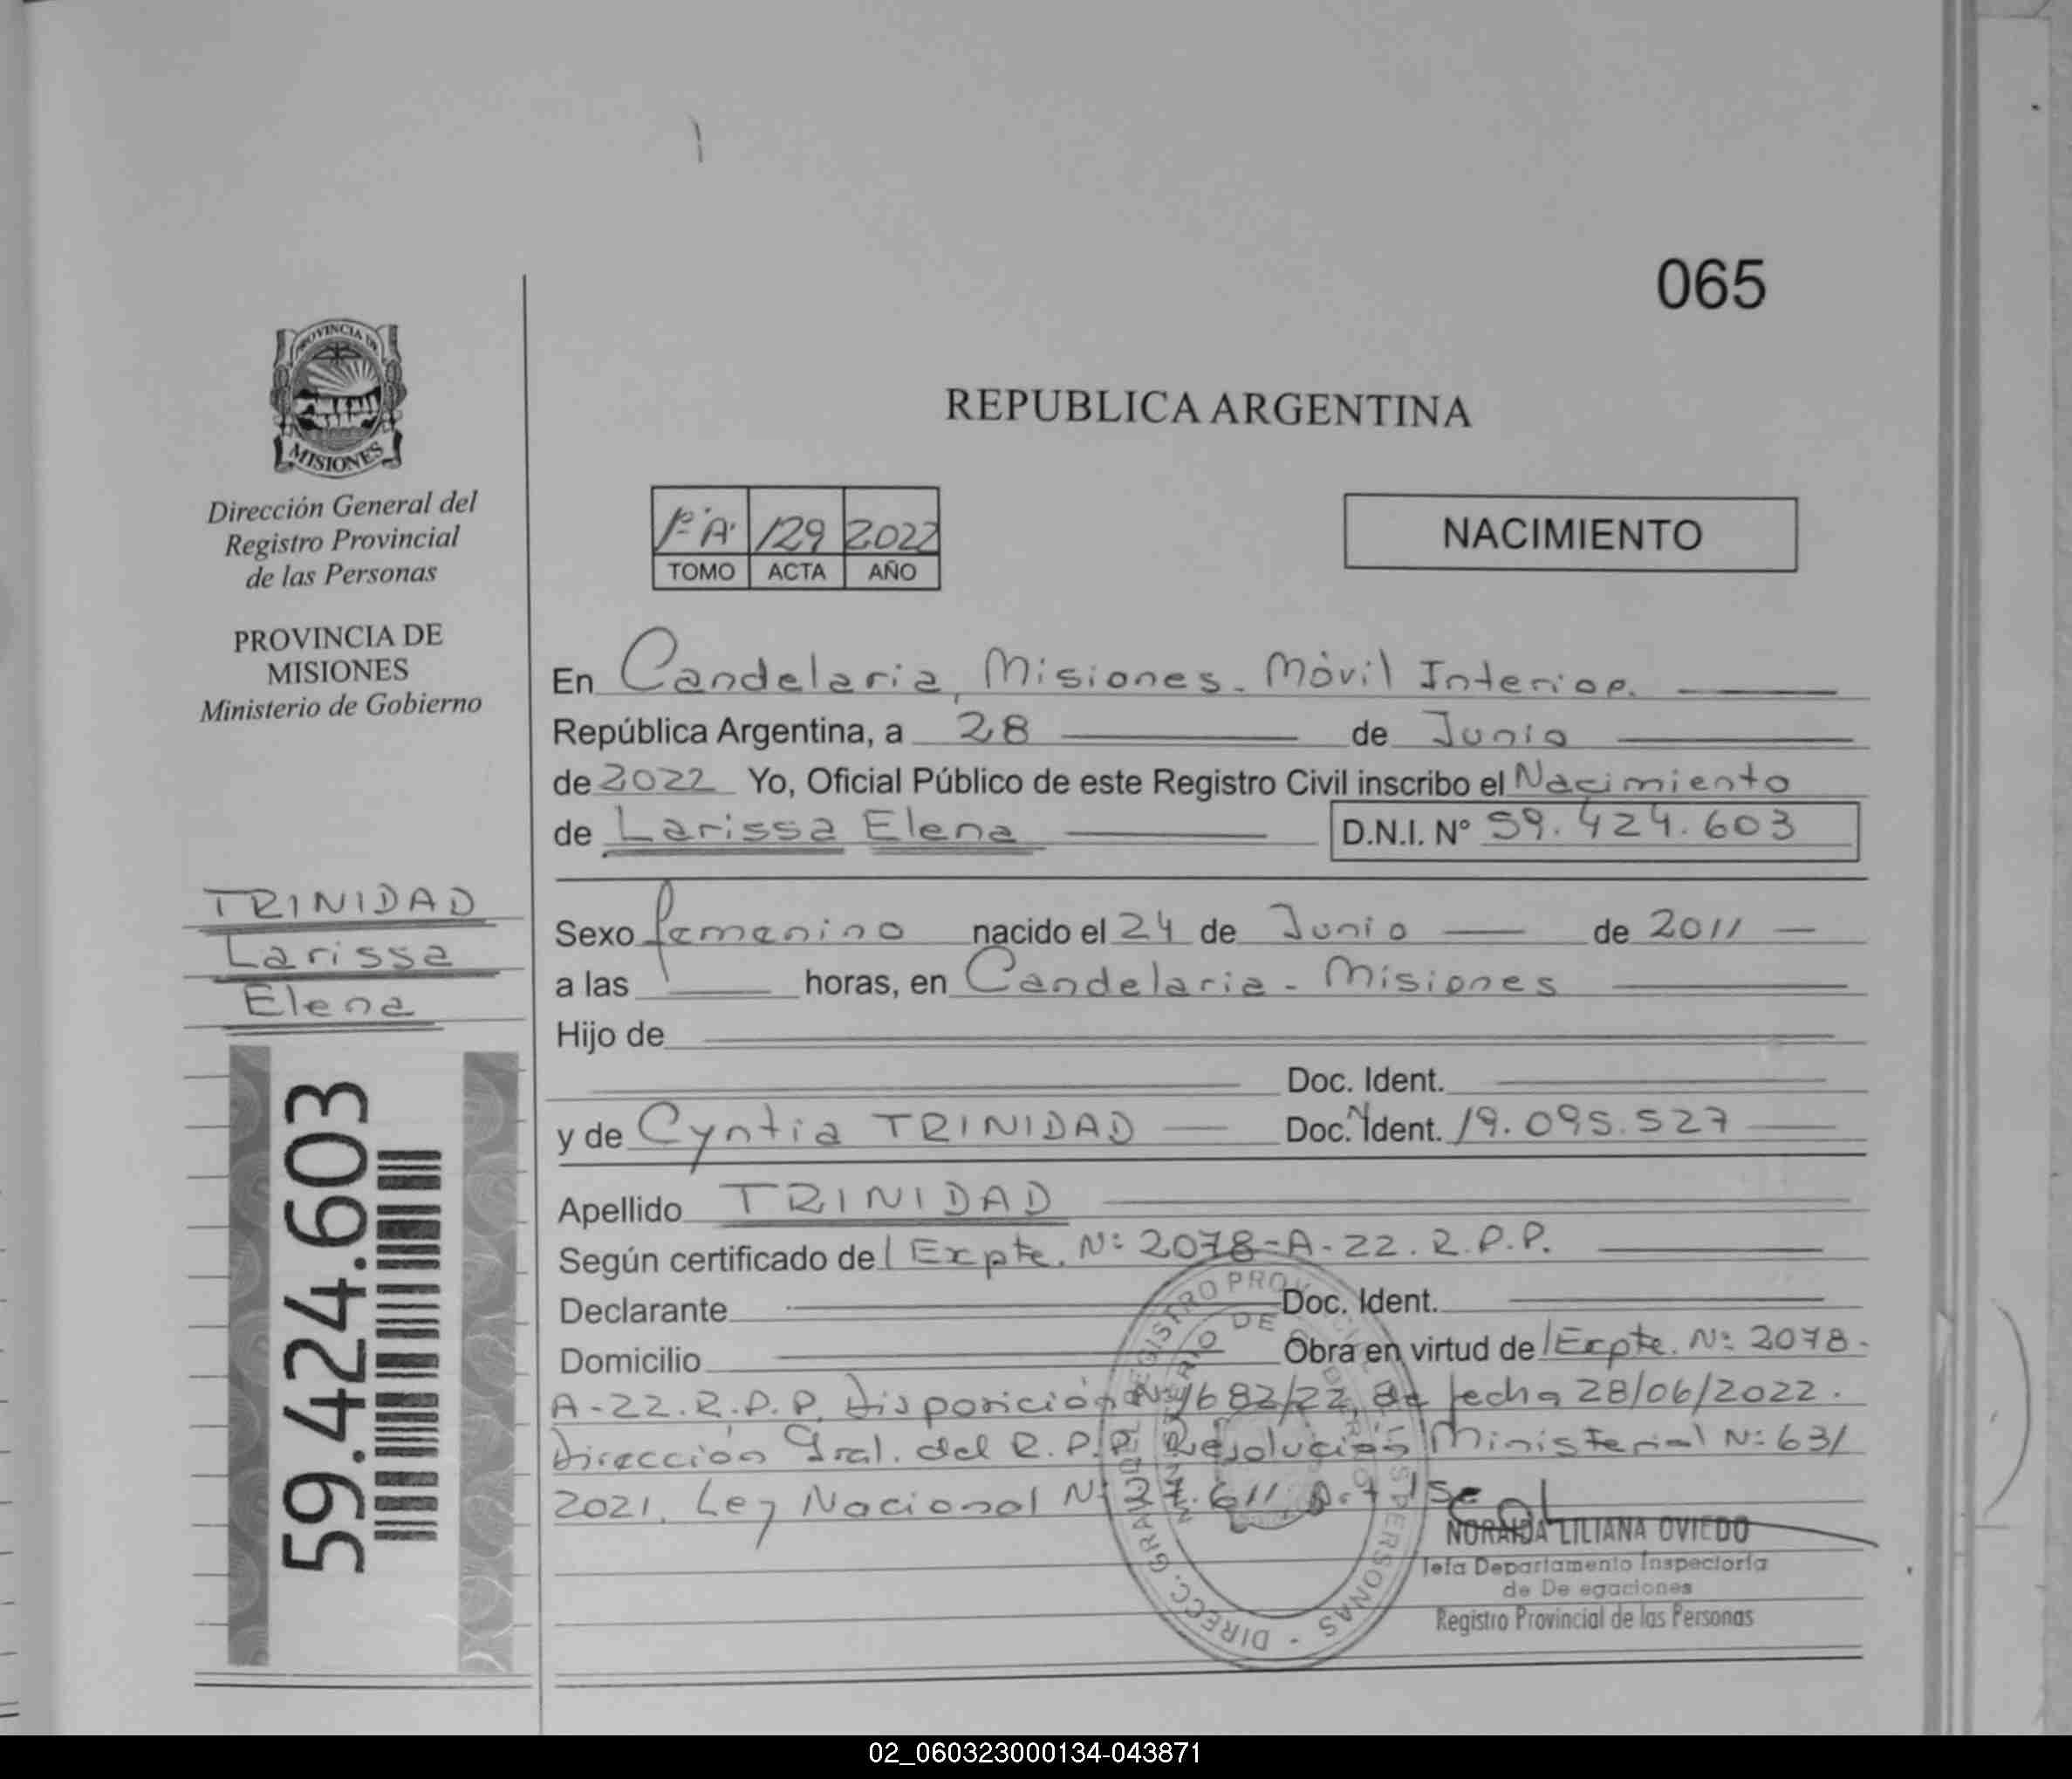 065
PROVINCIA DE
MISIONES
REPUBLICA ARGENTINA
Dirección General del
Registro Provincial
de las Personas
PROVINCIA DE
MISIONES
Ministerio de Gobierno
1º "A" 129 2022
TOMO ACTA AÑO
NACIMIENTO
En Candelaria, Misiones. Móvil Interior.
República Argentina, a 28 de Junio
de 2022 Yo, Oficial Público de este Registro Civil inscribo el Nacimiento
de Larissa Elena D.N.I. Nº 59.424.603
TRINIDAD
Larissa
Elena
59.424.603
Sexo femenino nacido el 24 de Junio de 2011
a las horas, en Candelaria - Misiones
Hijo de
Doc. Ident.
y de Cyntia TRINIDAD Doc. Ident. 19.095.527
Apellido TRINIDAD
Según certificado del Expte. Nº 2078-A-22. R.P.P.
Declarante Doc. Ident.
Domicilio Obra en virtud de l Expte. Nº 2078-
A-22. R.P.P. Disposición Nº 1682/22, de fecha 28/06/2022.
Dirección Gral. del R.P.P. Resolución Ministerial Nº 631
2021. Ley Nacional Nº 27.611
DIRECC. GRAL. DEL REGISTRO PROVINCIAL DE LAS PERSONAS
MINISTERIO DE GOBIERNO
NORAIDA LILIANA OVIEDO
Jefa Departamento Inspectoría
de De egaciones
Registro Provincial de las Personas
02_060323000134-043871